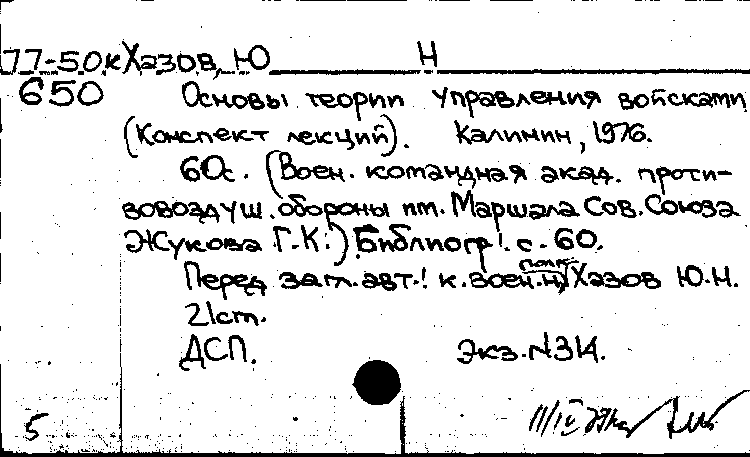 77-50к Хазов, Ю Н
650 Основы теории управления войсками
(Конспект лекций). Калинин, 1976.
60с. (Воен. командная акад. проти-
вовоздуш. обороны им. Маршала Сов. Союза
Жукова Г.К.) Библиогр!. с. 60.
полк.
Перед загл. авт.! к. воен. н., Хазов Ю.Н.
21см.
ДСП. Экз. №314.
5